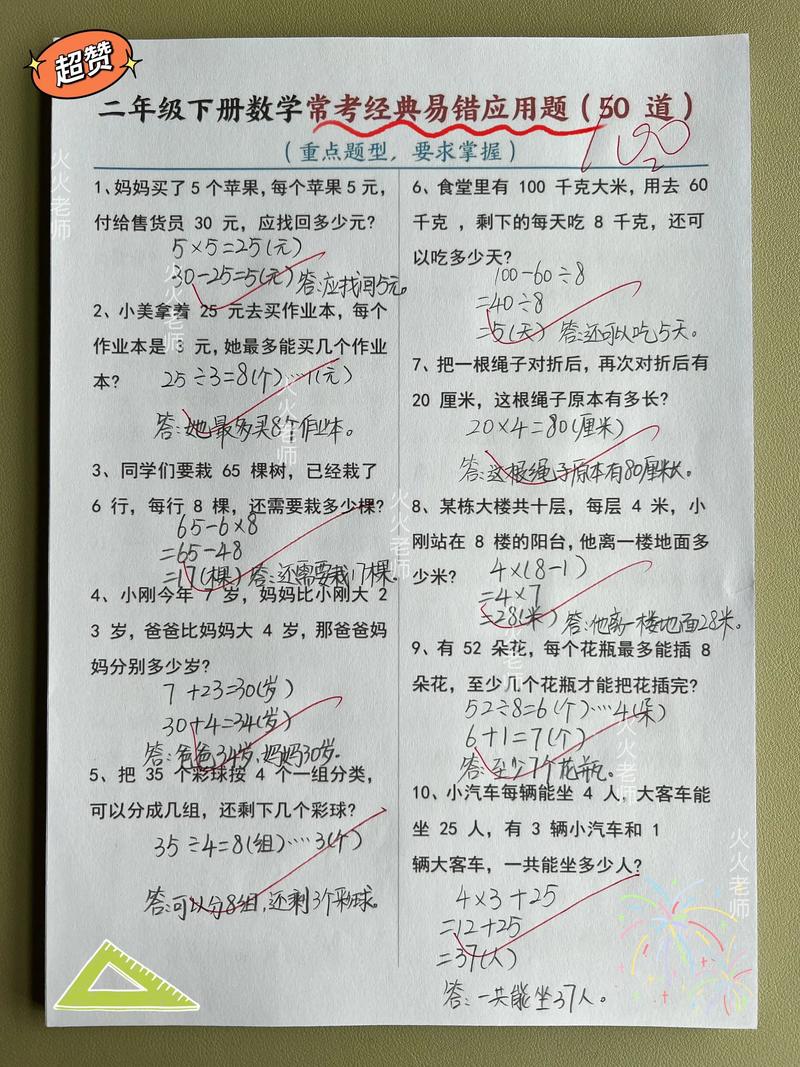 超赞
二年级下册数学常考经典易错应用题(50 道)
100
(重点题型，要求掌握)
1、妈妈买了 5 个苹果，每个苹果 5 元，
付给售货员 30 元，应找回多少元?
5×5=25(元)
30-25=5(元) 答:应找回5元。
2、小美拿着 25 元去买作业本，每个
作业本是 3 元，她最多能买几个作业
本?
25÷3=8(个)……1(元)
答:她最多买8个作业本。
3、同学们要栽 65 棵树，已经栽了
6 行，每行 8 棵，还需要栽多少棵?
65-6×8
=65-48
=17(棵) 答:还需要栽17棵。
4、小刚今年 7 岁，妈妈比小刚大 2
3 岁，爸爸比妈妈大 4 岁，那爸爸妈
妈分别多少岁?
7+23=30(岁)
30+4=34(岁)
答:爸爸34岁，妈妈30岁。
5、把 35 个彩球按 4 个一组分类，
可以分成几组，还剩下几个彩球?
35÷4=8(组)……3(个)
答:可以分8组，还剩3个彩球。
6、食堂里有 100 千克大米，用去 60
千克 ，剩下的每天吃 8 千克，还可
以吃多少天?
100-60÷8
=40÷8
=5(天) 答:还可以吃5天。
7、把一根绳子对折后，再次对折后有
20 厘米，这根绳子原本有多长?
20×4=80(厘米)
答:这根绳子原本有80厘米长。
8、某栋大楼共十层，每层 4 米，小
刚站在 8 楼的阳台，他离一楼地面多
少米?
4×(8-1)
=4×7
=28(米) 答:他离一楼地面28米。
9、有 52 朵花，每个花瓶最多能插 8
朵花，至少几个花瓶才能把花插完?
52÷8=6(个)……4(朵)
6+1=7(个)
答:至少7个花瓶。
10、小汽车每辆能坐 4 人，大客车能
坐 25 人，有 3 辆小汽车和 1
辆大客车，一共能坐多少人?
4×3+25
=12+25
=37(人)
答:一共能坐37人。
火火老师
火火老师
火火老师
火火老师
火火老师
火火老师
火火老师